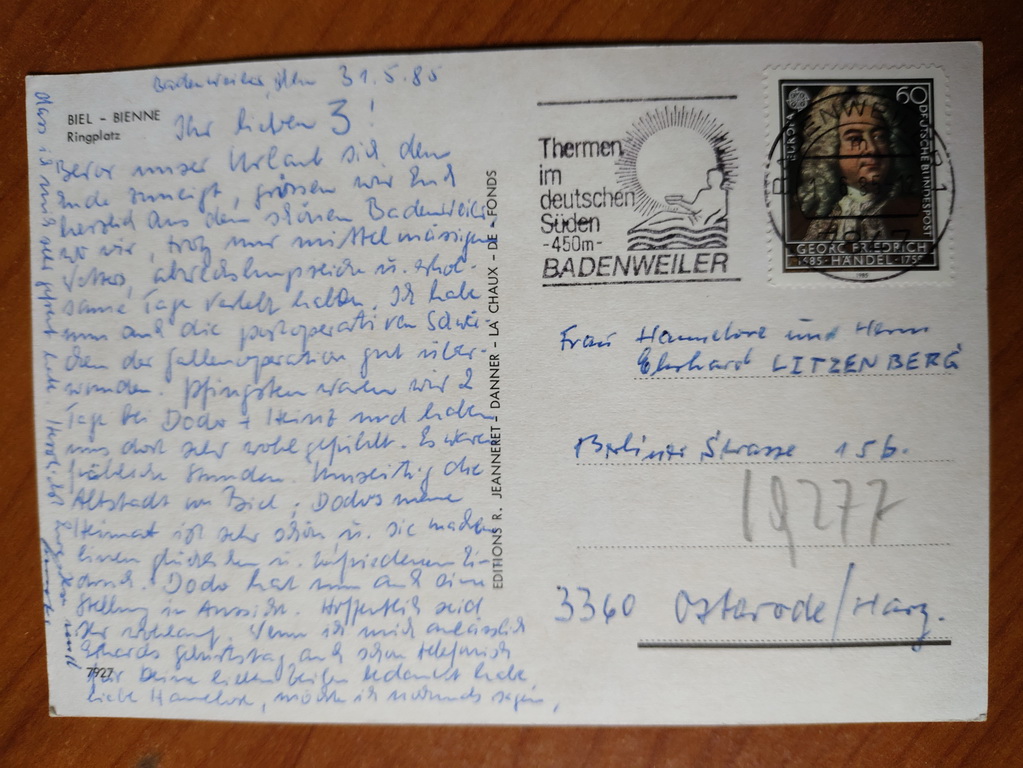 Badenweiler, den 31.5.85
BIEL - BIENNE
Ringplatz
Ihr lieben 3!
Bevor unser Urlaub sich dem
Ende zuneigt, grüssen wir Euch
herzlich aus dem schönen Badenweiler,
wo wir, trotz nur mittelmässigen
Wetters, abwechslungsreiche u. erhol-
same Tage verlebt haben. Ich habe
nun auch die postoperativen Schwä-
chen der Gallenoperation gut über-
wunden. Pfingsten waren wir 2
Tage bei Dodo + Heinz und haben
uns dort sehr wohl gefühlt. Es waren
fröhliche Stunden. Umseitig die
Altstadt von Biel; Dodos neue
Heimat ist sehr schön u. sie machen
einen glücklichen u. zufriedenen Ein-
druck. Dodo hat nun auch eine
Stellung in Aussicht. Hoffentlich seid
Ihr wohlauf. Wenn ich mich anlässlich
Ehrhards Geburtstag auch schon telefonisch
für Deine lieben Zeilen bedankt habe
liebe Hannelore, möchte ich nochmals sagen,
dass ich mich sehr gefreut habe. Herzlichst
7927
EDITIONS R. JEANNERET - DANNER - LA CHAUX - DE - FONDS
Thermen
im
deutschen
Süden
-450m-
BADENWEILER
EUROPA
60
DEUTSCHE BUNDESPOST
GEORG FRIEDRICH
1685 - HÄNDEL - 1759
1985
BADENWEILER 1
7847
Frau Hannelore und Herrn
Ehrhard LITZENBERG
Berliner Strasse 156.
19277
3360 Osterode/Harz.